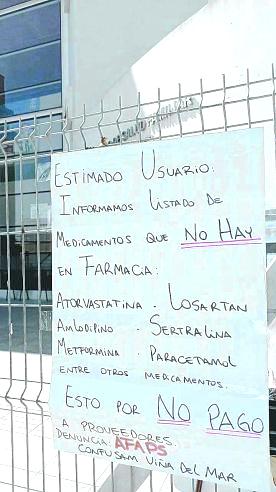 ESTIMADO USUARIO:
INFORMAMOS LISTADO DE
MEDICAMENTOS QUE NO HAY
EN FARMACIA:
ATORVASTATINA - LOSARTAN
AMLODIPINO - SERTRALINA
METFORMINA - PARACETAMOL
ENTRE OTROS MEDICAMENTOS.
ESTO POR NO PAGO
A PROVEEDORES.
DENUNCIA: AFAPS
CONFUSAM VIÑA DEL MAR